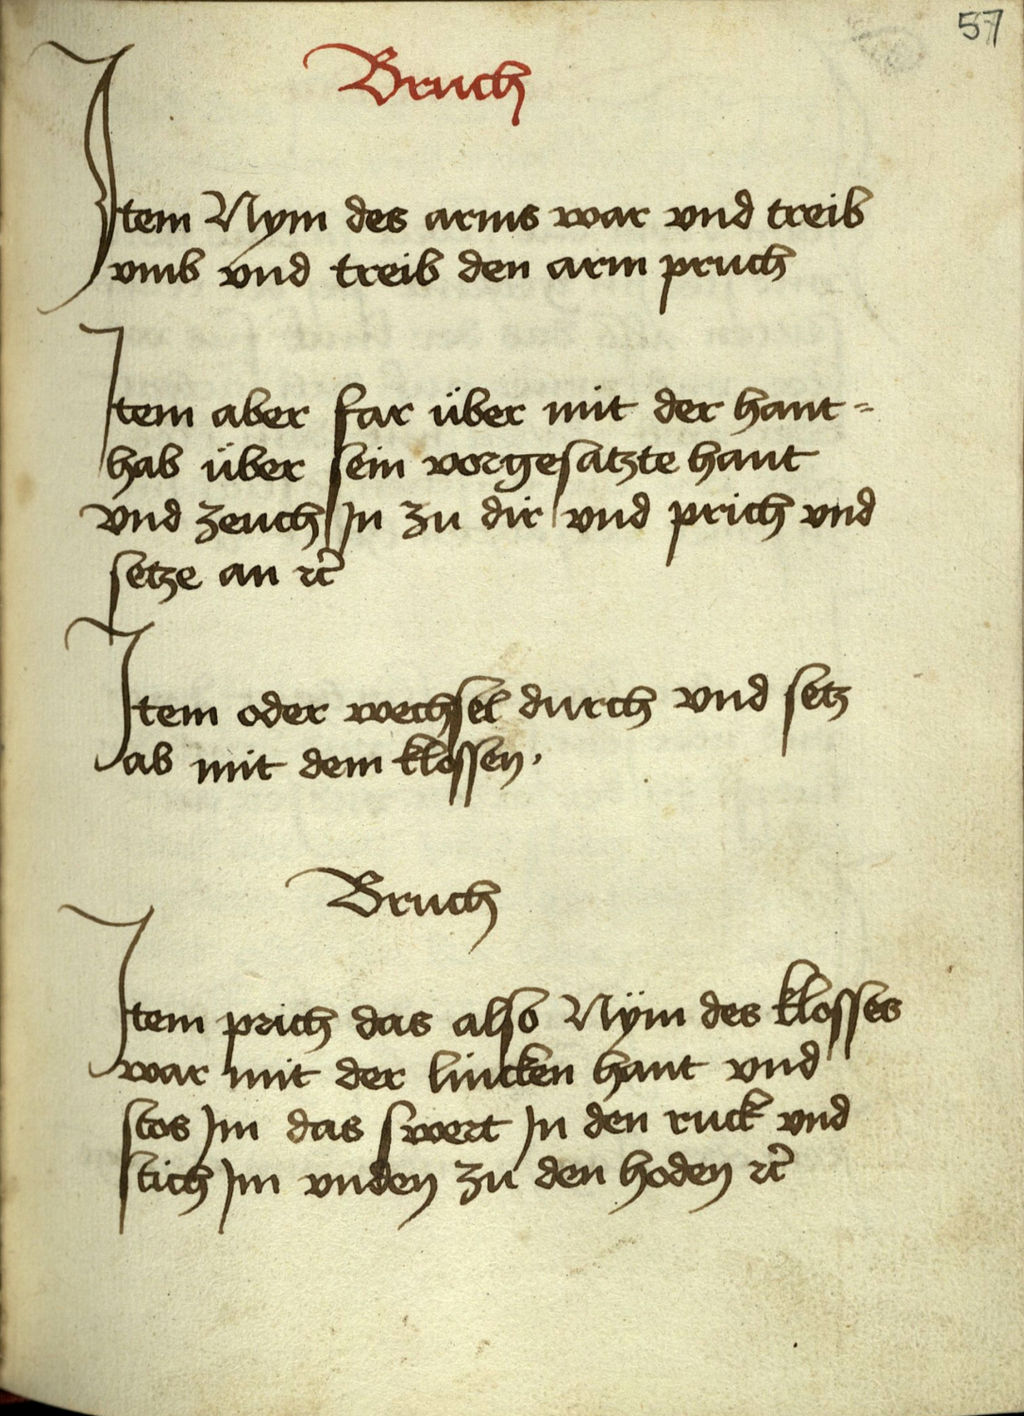 57
Bruch
Item Nym des arms war vnd treib
vmb vnd treib den arm pruch
Item aber far über mit der hant=
hab über sein vorgesatzte hant
vnd zeuch In zu dir vnd prich vnd
setze an ⁊c̄
Item oder wechsel durch vnd setz
ab mit dem klossen.
Bruch
Item prich das also Nÿm des klosses
war mit der lincken hant vnd
stos Im das swert In den ruck vnd
stich Im vnden zu den hoden ⁊c̄